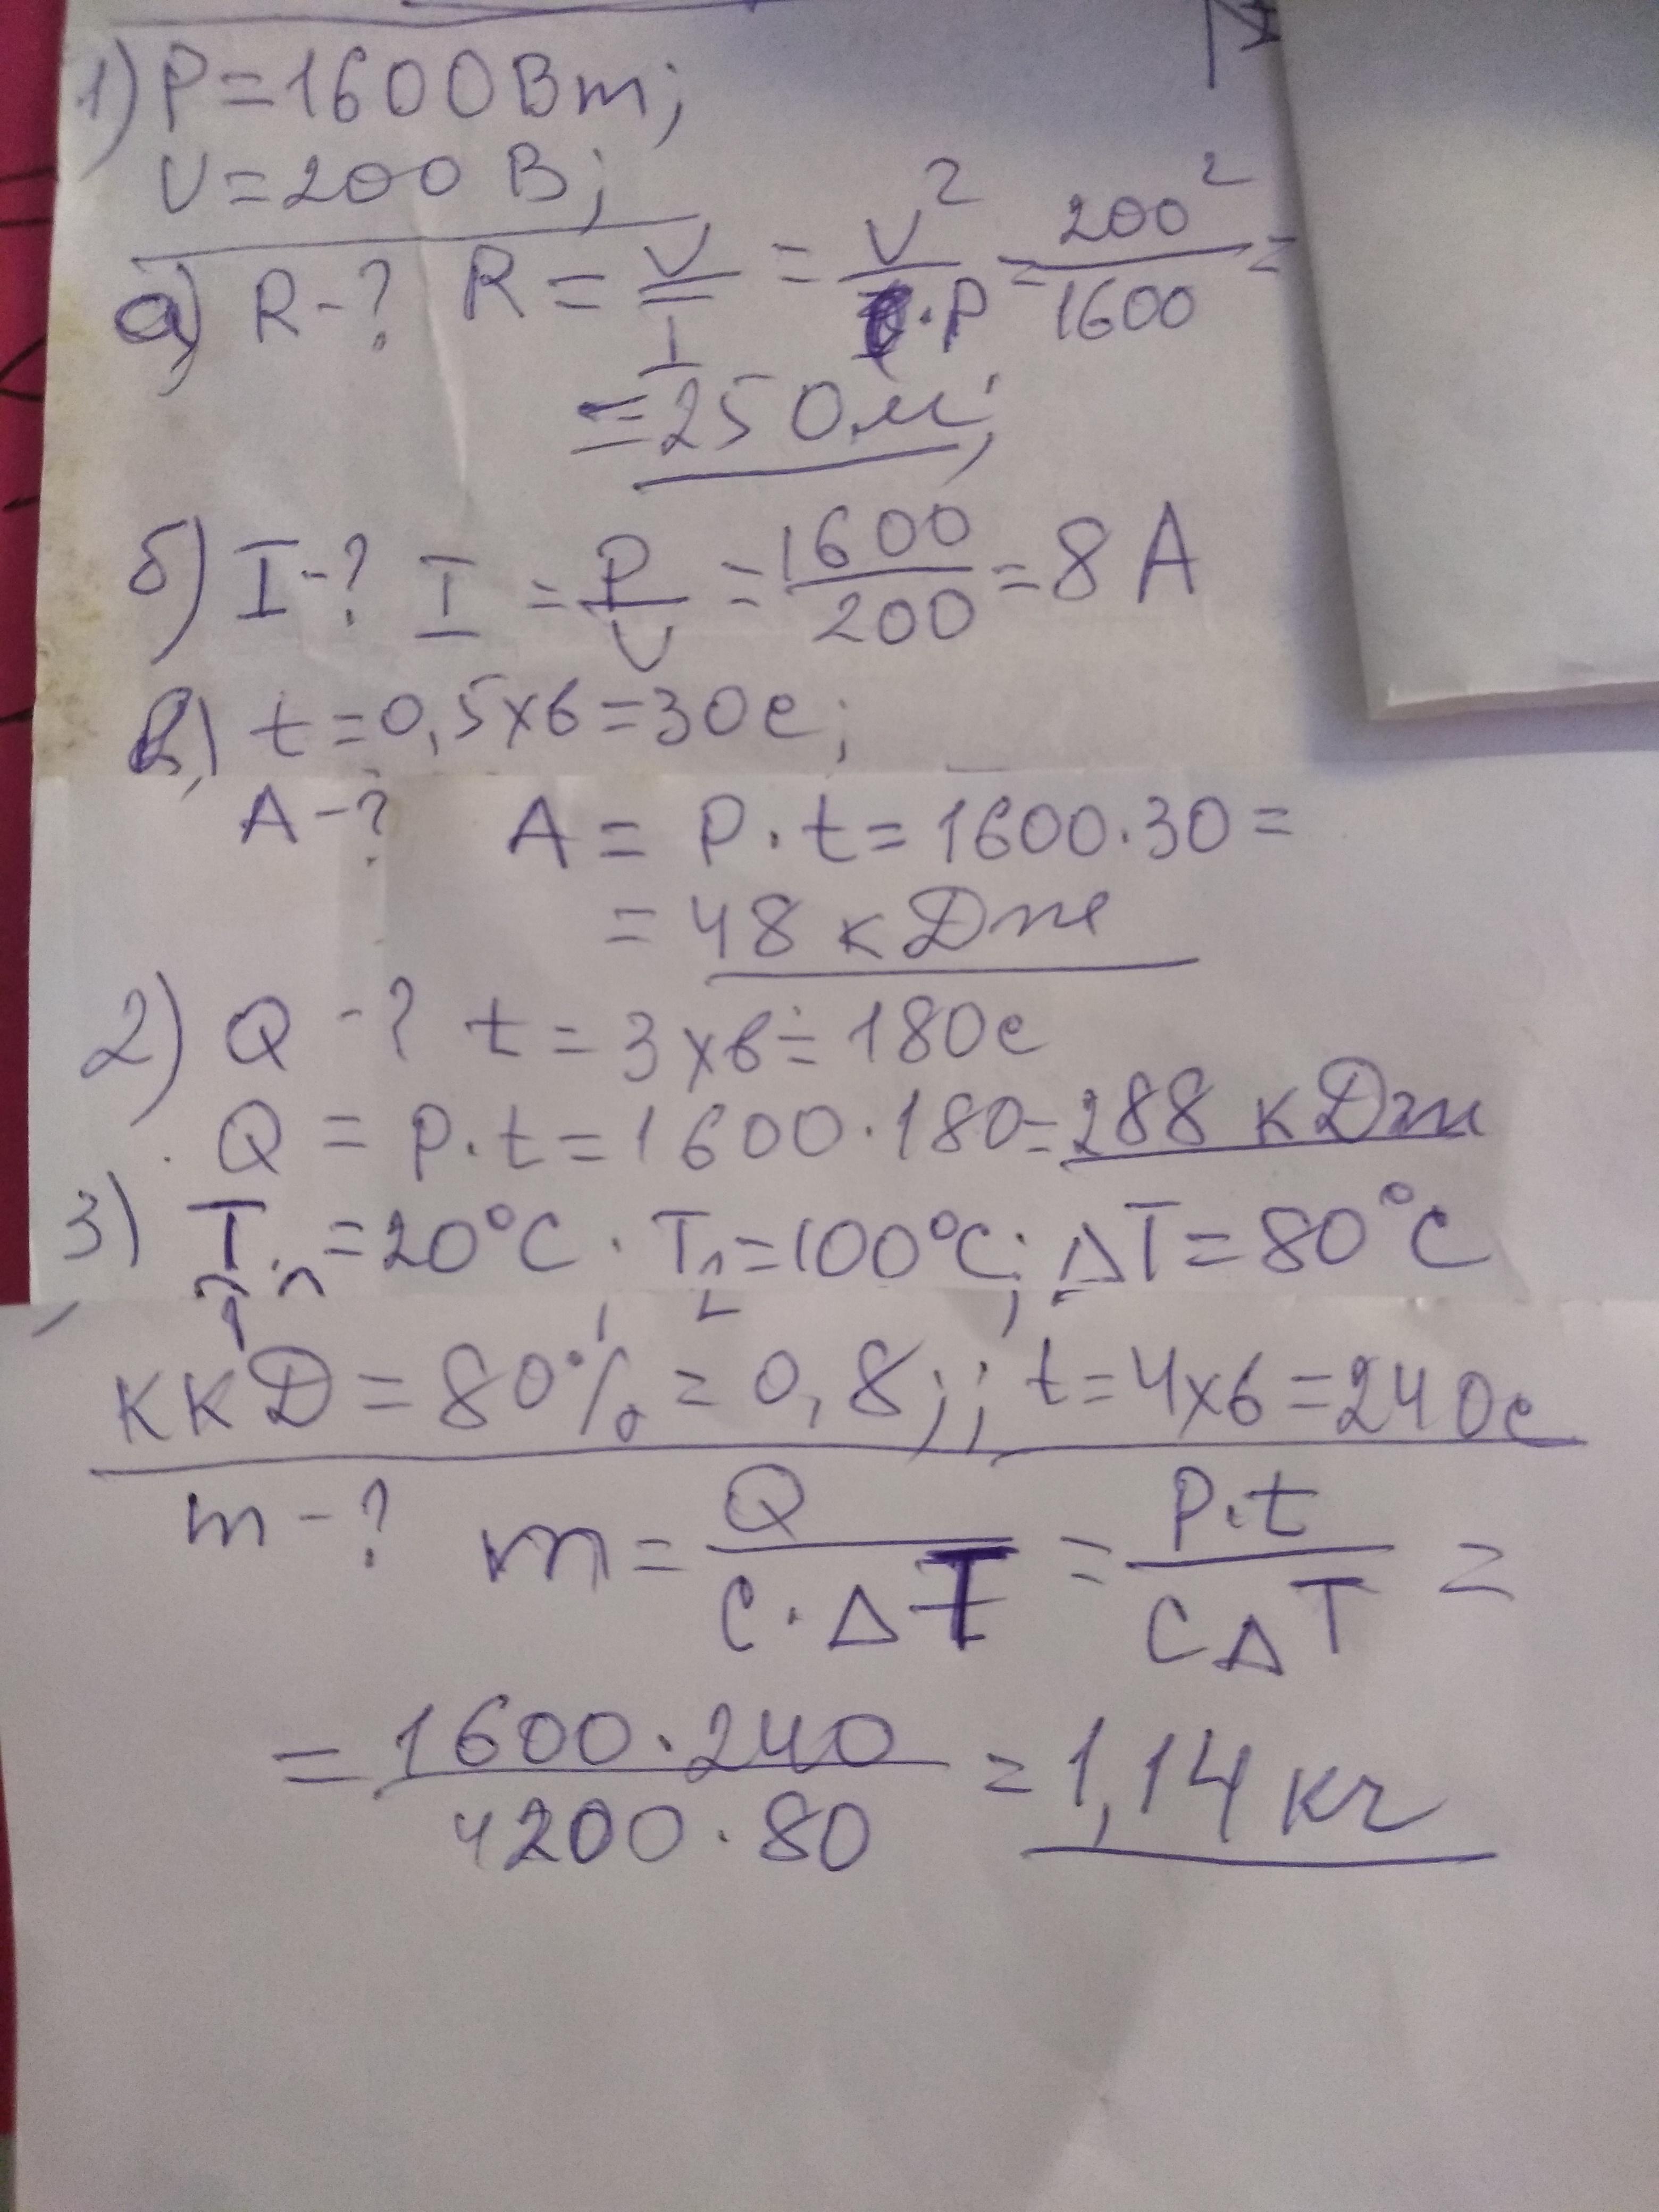 1) P=1600Вт;
U=200 В;
а) R-? R = U/I = U²/P = 200²/1600 =
= 25 Ом;
б) I-? I = P/U = 1600/200 = 8 А
в) t=0,5х6=30с;
А-? А = P·t=1600·30=
= 48 кДж
2) Q-? t=3х6=180с
Q = P·t=1600·180=288 кДж
3) T₁=20°С. T₂=100°С; ΔT=80°С
ККД=80%=0,8;; t=4х6=240с
m-? m= Q/C·ΔT = P·t/CΔT =
= 1600·240/4200·80 = 1,14 кг